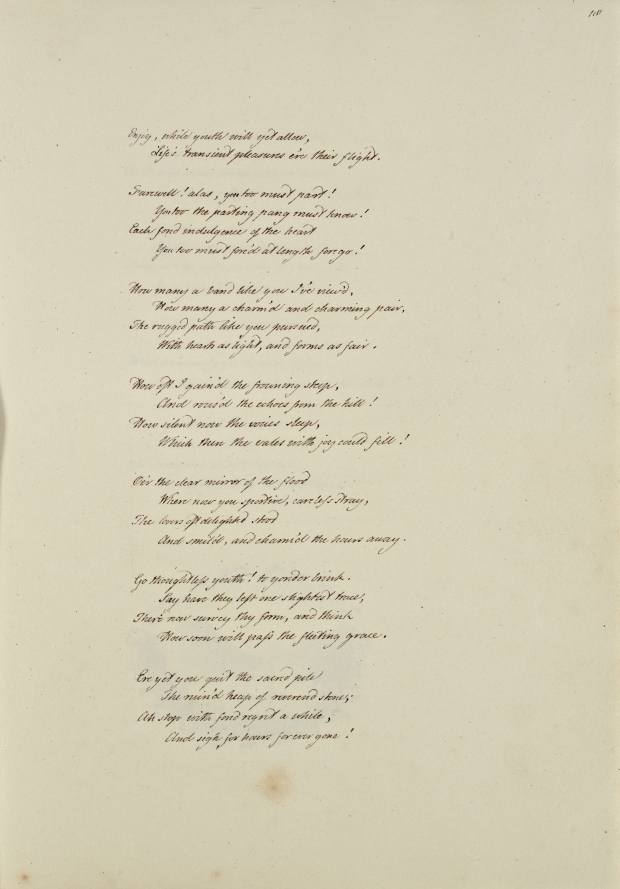 Enjoy, while youth will yet allow,
Life's transient pleasures e're their flight.
Farewell! alas, you too must part!
You too the parting pang must know!
Each fond indulgence of the heart
You too must forc'd at length forego!
How many a band like you I've view'd,
How many a charm'd and charming pair,
The rugged path like you pursued,
With hearts as light, and forms as fair.
How oft I gain'd the frowning steep,
And rous'd the echoes from the hill!
How silent now the voices sleep,
Which then the vales with joy could fill!
O'er the clear mirror of the flood
Where now you sportive, careless stray,
The lovers oft delighted stood
And smil'd, and charm'd the hours away.
Go thoughtless youth! to yonder brink.
Say have they left one slightest trace;
There now survey thy form, and think
How soon will pass the fleeting grace.
Ere yet you quit the sacred pile
The ruin'd heap of reverend stone;
Ah stop with fond regret a while,
And sigh for hours for ever gone!